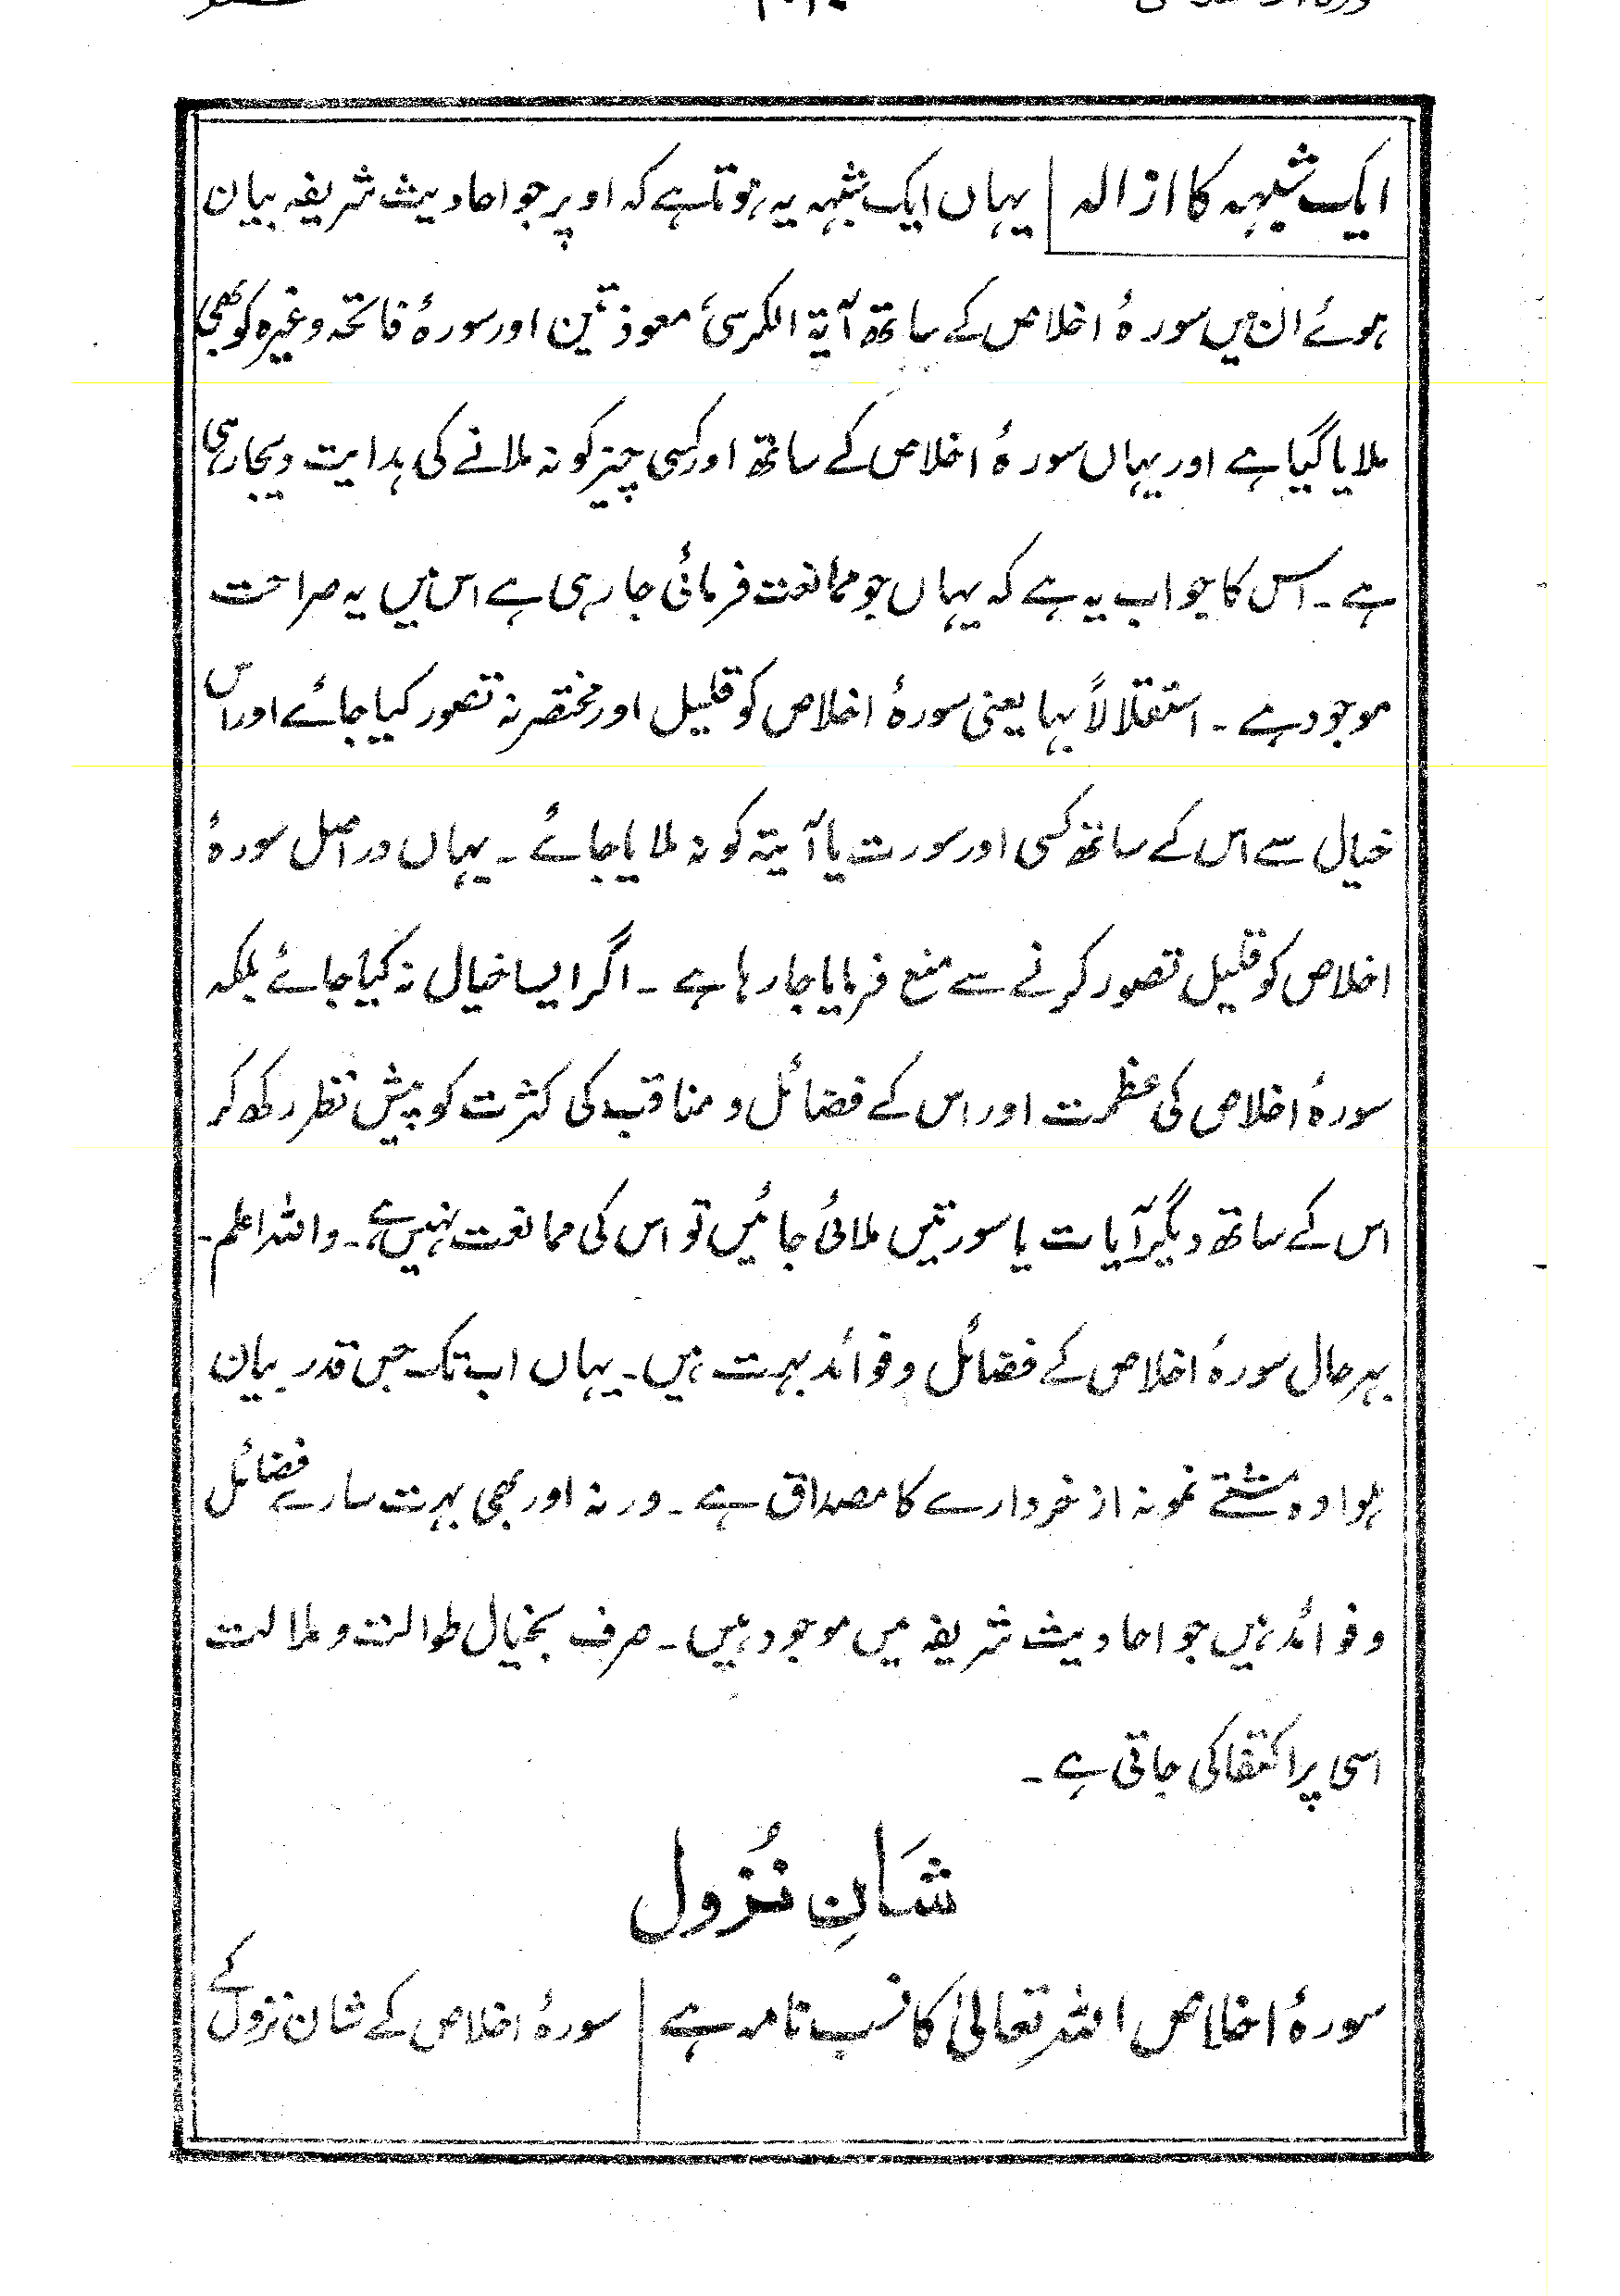 ایک شبہہ کا ازالہ یہاں ایک شبہہ یہ ہوتا ہے کہ اوپر جو احادیث شریفہ بیان
ہوئے ان میں سورۂ اخلاص کے ساتھ آیۃ الکرسی معوذتین اور سورۂ فاتحہ وغیرہ کو بھی
ملایا گیا ہے اور یہاں سورۂ اخلاص کے ساتھ اور کسی چیز کو نہ ملانے کی ہدایت دیجارہی
ہے۔ اس کا جواب یہ ہے کہ یہاں جو ممانعت فرمائی جارہی ہے اس میں یہ صراحت
موجود ہے۔ استقلالاً بہا یعنی سورۂ اخلاص کو قلیل اور مختصر نہ تصور کیا جائے اور اس
خیال سے اس کے ساتھ کسی اور سورت یا آیتہ کو نہ ملایا جائے۔ یہاں دراصل سورۂ
اخلاص کو قلیل تصور کرنے سے منع فرمایا جارہا ہے۔ اگر ایسا خیال نہ کیا جائے بلکہ
سورۂ اخلاص کی عظمت اور اس کے فضائل و مناقب کی کثرت کو پیش نظر رکھ کر
اس کے ساتھ دیگر آیات یا سورتیں ملائی جائیں تو اس کی ممانعت نہیں ہے۔ واللہ اعلم۔
بہرحال سورۂ اخلاص کے فضائل و فوائد بہت ہیں۔ یہاں اب تک جس قدر بیان
ہوا وہ مشتے نمونہ از خروارے کا مصداق ہے۔ ورنہ اور بھی بہت سارے فضائل
و فوائد ہیں جو احادیث شریفہ میں موجود ہیں۔ صرف بخیال طوالت و ملالت
اسی پر اکتفا کی جاتی ہے۔
شَانِ نُزول
سورۂ اخلاص اللہ تعالیٰ کا نسب نامہ ہے سورۂ اخلاص کے شان نزول کے